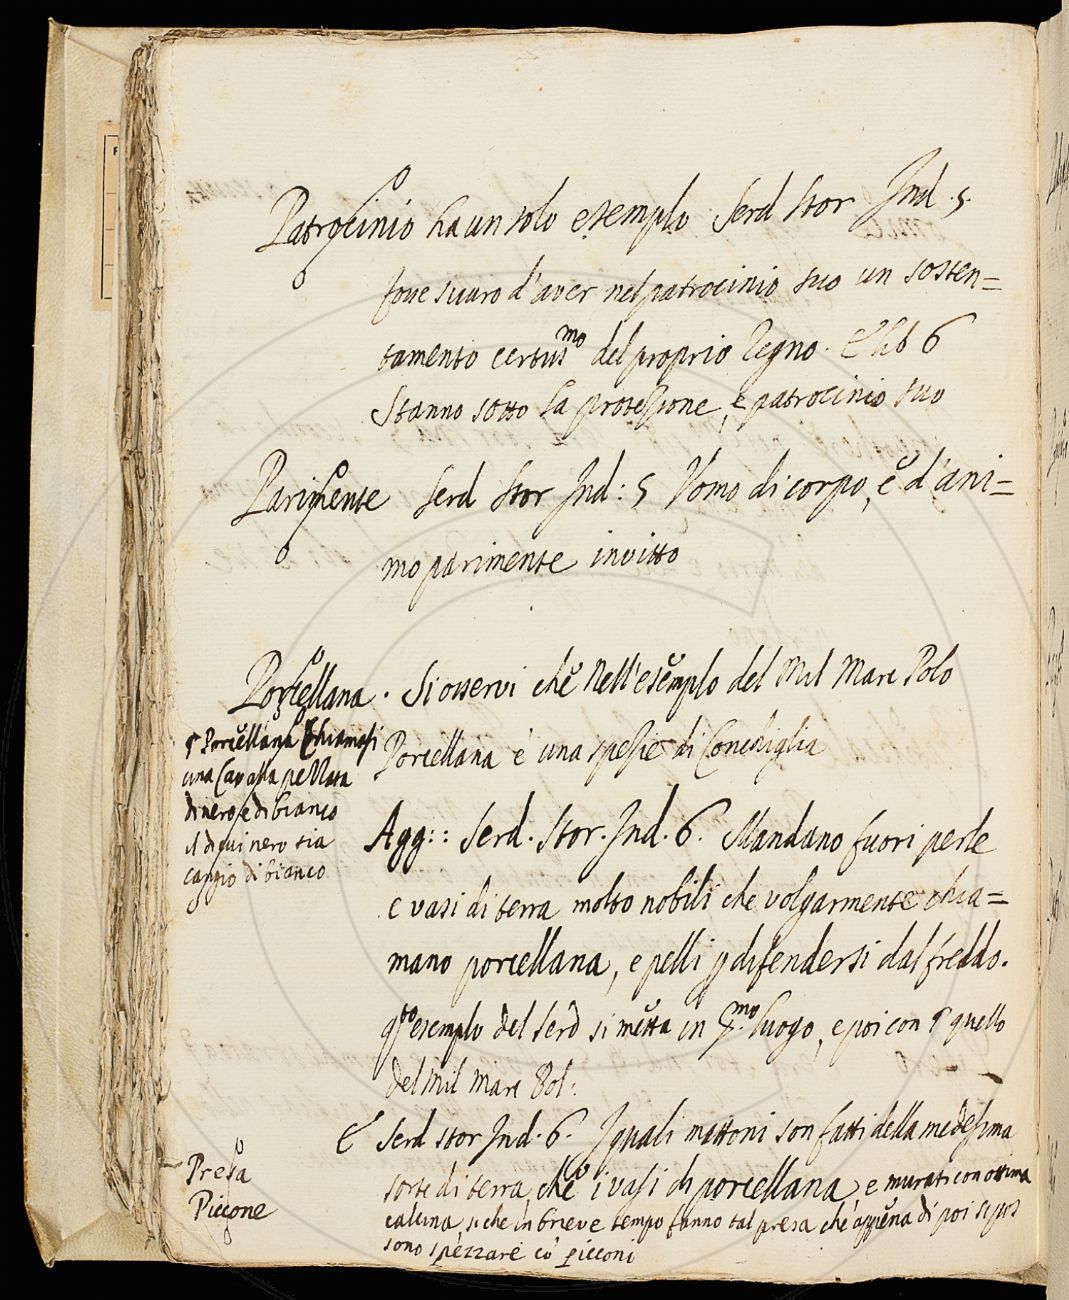 Patrocinio ha un solo esemplo Serd Stor Ind. 5.
fosse sicuro d'aver nel patrocinio suo un sosten=
tamento certiss.mo del proprio Regno. E lib 6
Stanno sotto la protezione, e patrocinio suo
Parimente Serd Stor Ind: 5 Vomo di corpo, e d'ani=
mo parimente invitto
Porcellana. Si osservi che nell'esemplo del Mil Marc Polo
Porcellana è una spezie di Conchiglia
§ Porcellana Chiamasi
una Cavalla pezzata
di nero, e di bianco
il di cui nero sia
cangio di bianco
Agg:: Serd. Stor. Ind. 6. Mandano fuori perle
e vasi di terra molto nobili che volgarmente chia=
mano porcellana, e pelli p difendersi dal freddo.
q.to esemplo del Serd si metta in p.mo luogo, e poi con § quello
del Mil Marc Pol:
E Serd Stor Ind. 6. I quali mattoni son fatti della medesima
sorte di terra, che i vasi di porcellana, e murati con ottima
calcina, si che in breve tempo fanno tal presa che appena di poi si
sono spezzare co' picconi
Presa
Piccone